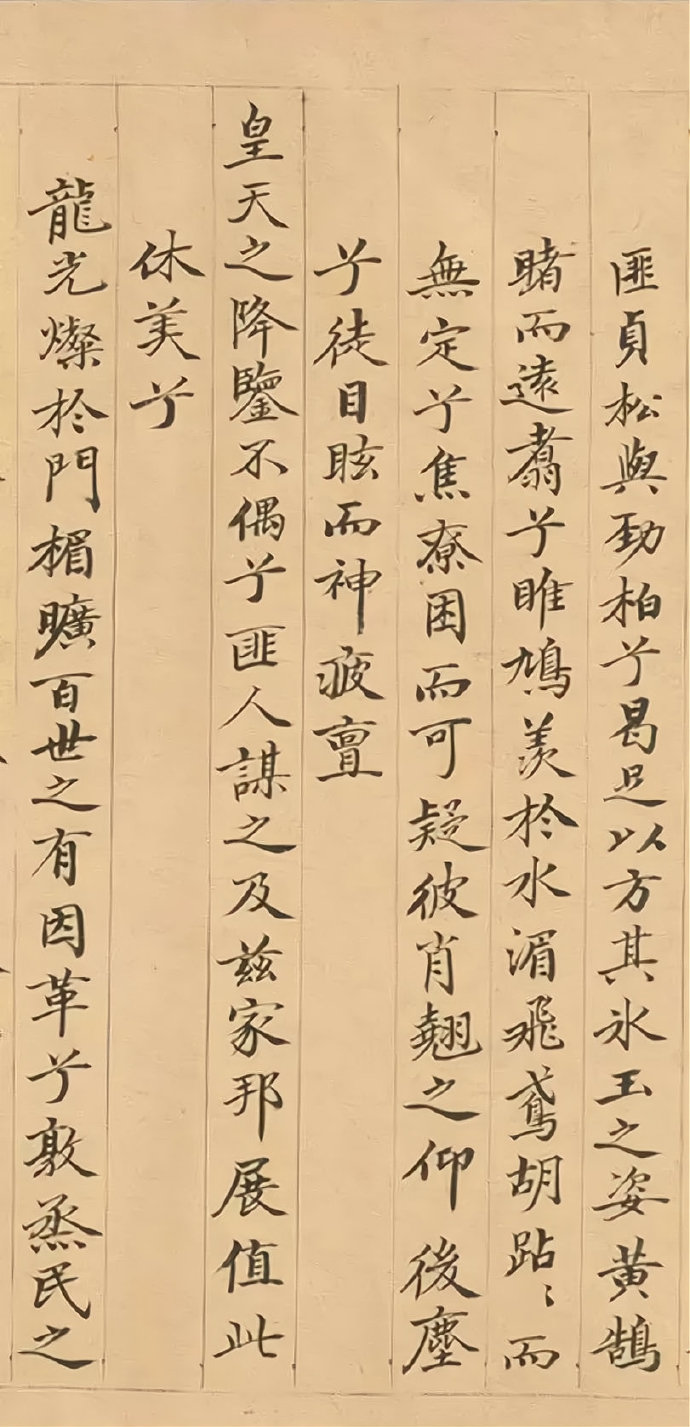 匪貞松與勁柏兮曷足以方其氷玉之姿黃鵠
睹而遠翥兮雎鳩羨於水湄飛鳶胡跕〻而
無定兮焦寮困而可疑彼肖翹之仰後塵
兮徒目眩而神疲亶
皇天之降鑒不偶兮匪人謀之及茲家邦展值此
休美兮
龍光燦於門楣曠百世之有因革兮敦烝民之